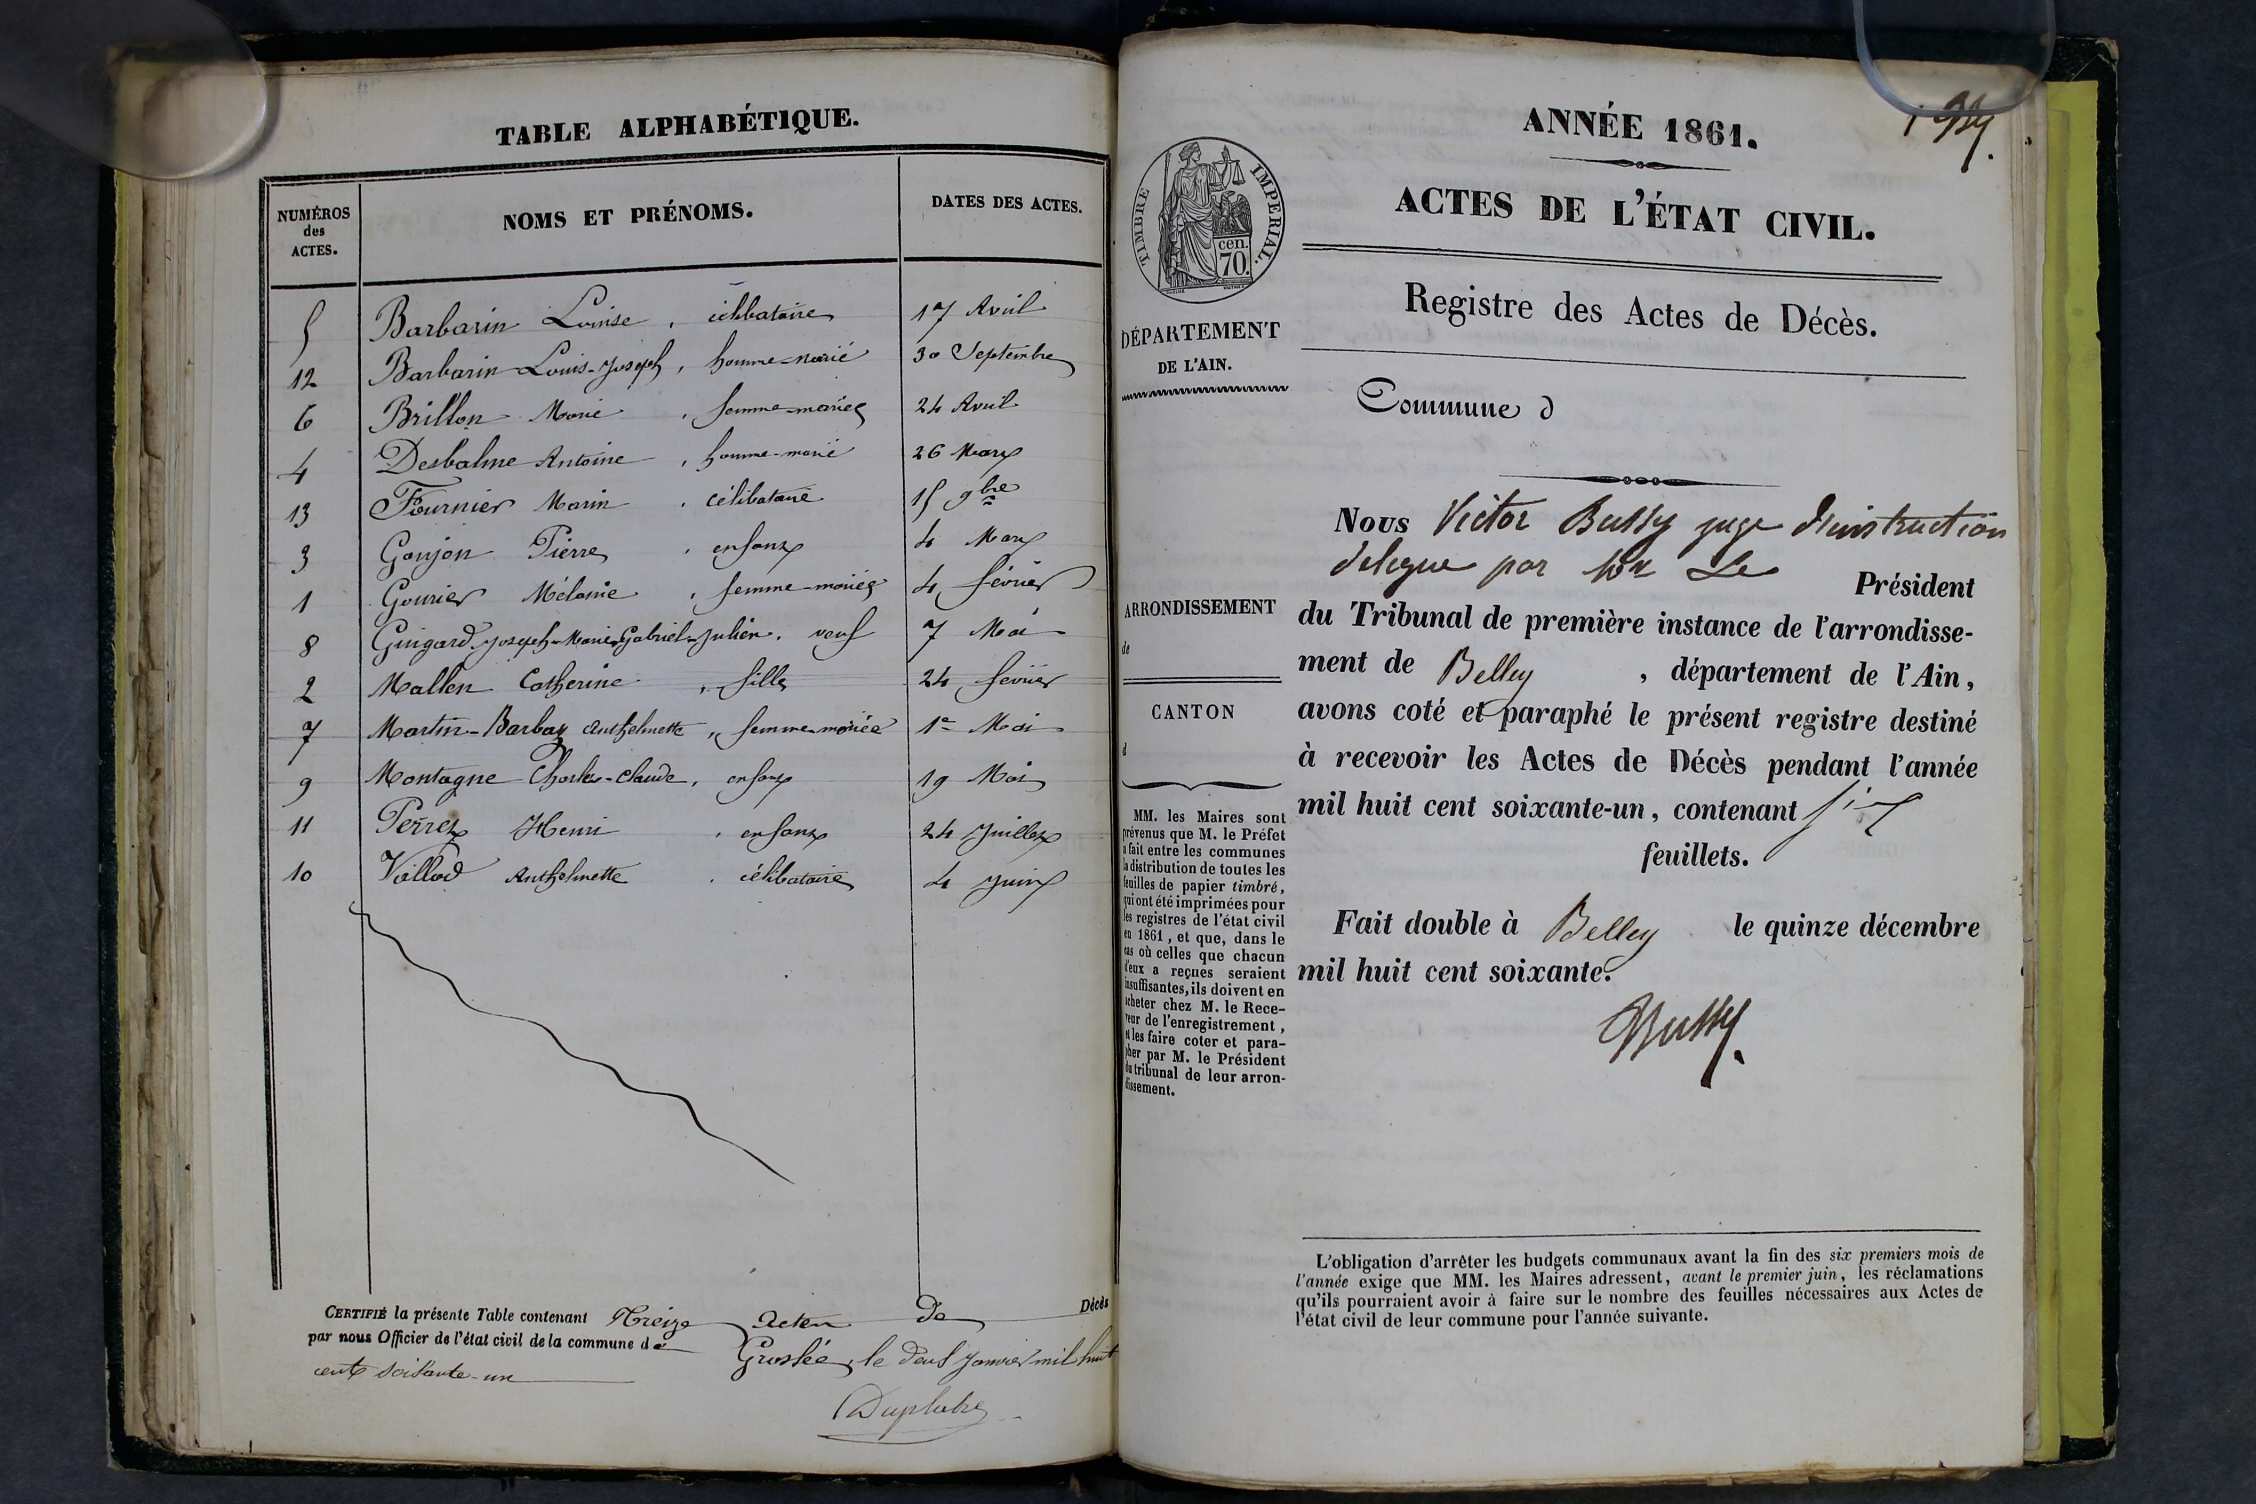 TABLE ALPHABÉTIQUE.
NUMÉROS des ACTES. NOMS ET PRÉNOMS. DATES DES ACTES.
5 Barbarin Louise, célibataire 17 Avril
12 Barbarin Louis-Joseph, homme-marié 30 Septembre
6 Brillon Marie, femme-mariée 24 Avril
4 Desbalme Antoine, homme-marié 26 Mars
13 Fournier Marin, célibataire 15 9bre
3 Goujon Pierre, enfant 4 Mars
1 Gourier Mélanie, femme-mariée 4 février
8 Guigard Joseph-Marie-Gabriel-Julien, veuf 7 Mai
2 Mallen Catherine, fille 24 février
7 Martin-Barbaz Anthelmette, femme-mariée 1er Mai
9 Montagne Charles-Claude, enfant 19 Mai
11 Perret Henri, enfant 24 Juillet
10 Vallod Anthelmette, célibataire 4 Juin
CERTIFIÉ la présente Table contenant Treize actes de Décès
par nous Officier de l'état civil de la commune de Groslée, le deux Janvier mil huit
cent soixante-un
ANNÉE 1861.
ACTES DE L'ÉTAT CIVIL.
Registre des Actes de Décès.
TIMBRE IMPERIAL.
cen. 70.
DÉPARTEMENT
DE L'AIN.
Commune d
Nous Victor Bussy juge d'instruction
délégué par Mr Le Président
du Tribunal de première instance de l'arrondisse-
ment de Belley, département de l'Ain,
avons coté et paraphé le présent registre destiné
à recevoir les Actes de Décès pendant l'année
mil huit cent soixante-un, contenant six
feuillets.
Fait double à Belley le quinze décembre
mil huit cent soixante.
Bussy.
ARRONDISSEMENT
de
CANTON
d
MM. les Maires sont
prévenus que M. le Préfet
a fait entre les communes
la distribution de toutes les
feuilles de papier timbré,
qui ont été imprimées pour
les registres de l'état civil
en 1861, et que, dans le
cas où celles que chacun
d'eux a reçues seraient
insuffisantes, ils doivent en
acheter chez M. le Rece-
veur de l'enregistrement,
et les faire coter et para-
pher par M. le Président
du tribunal de leur arron-
dissement.
L'obligation d'arrêter les budgets communaux avant la fin des six premiers mois de
l'année exige que MM. les Maires adressent, avant le premier juin, les réclamations
qu'ils pourraient avoir à faire sur le nombre des feuilles nécessaires aux Actes de
l'état civil de leur commune pour l'année suivante.